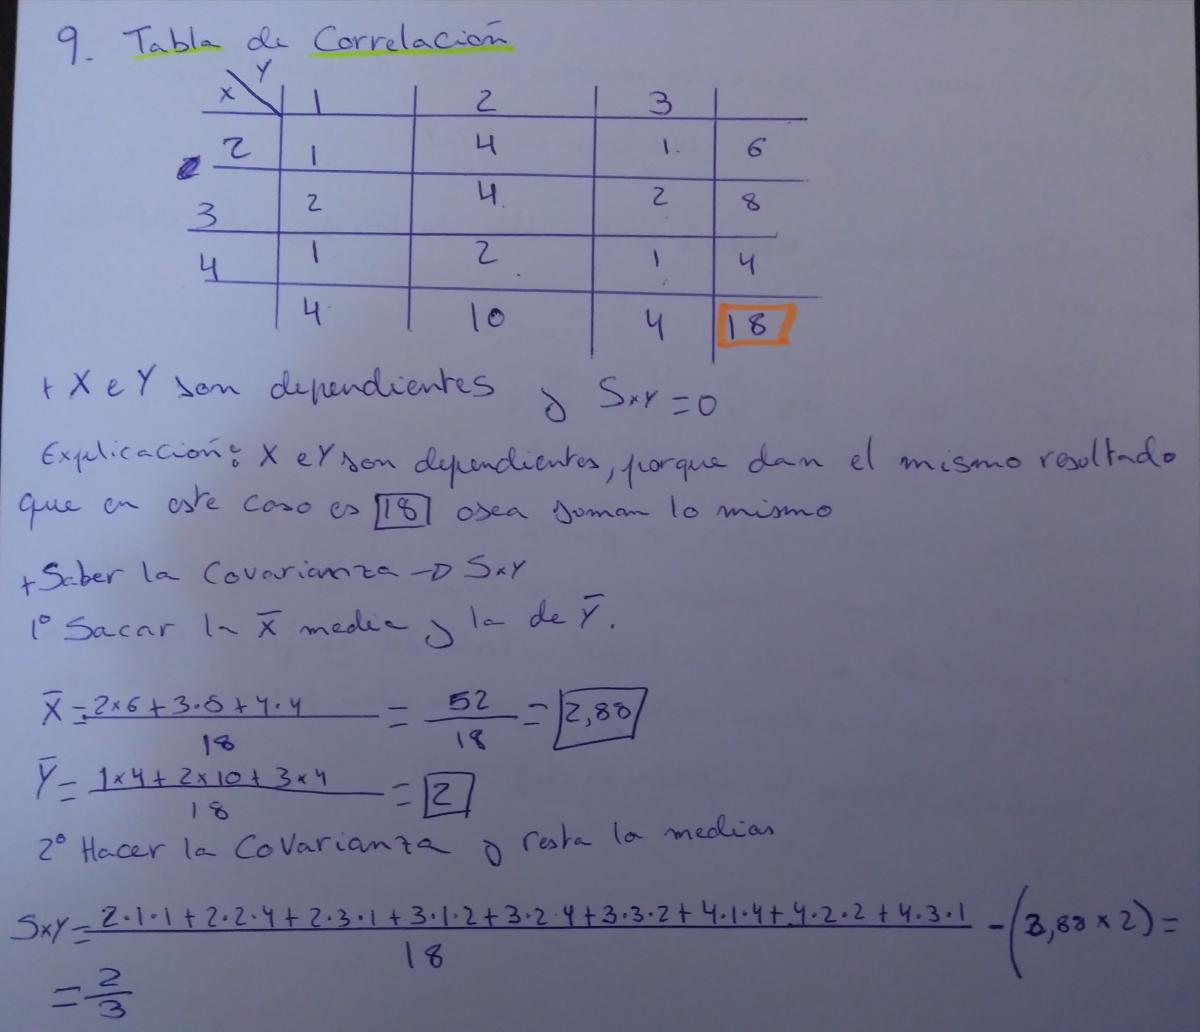 9. Tabla de Correlación
X Y 1 2 3
2 1 4 1. 6
3 2 4. 2 8
4 1 2 1 4
4 10 4 18
+ X e Y son dependientes y Sxy = 0
Explicación: X e Y son dependientes, porque dan el mismo resultado
que en este caso es 18 osea suman lo mismo
+ Saber la Covarianza → Sxy
1º Sacar la X̄ media y la de Ȳ.
X̄ = 2×6 + 3·8 + 4·4 / 18 = 52 / 18 = 2,88
Ȳ = 1×4 + 2×10 + 3×4 / 18 = 2
2º Hacer la Covarianza y resta la medias
Sxy = 2·1·1 + 2·2·4 + 2·3·1 + 3·1·2 + 3·2·4 + 3·3·2 + 4·1·4 + 4·2·2 + 4·3·1 / 18 - (2,88 × 2) =
= 2 / 3